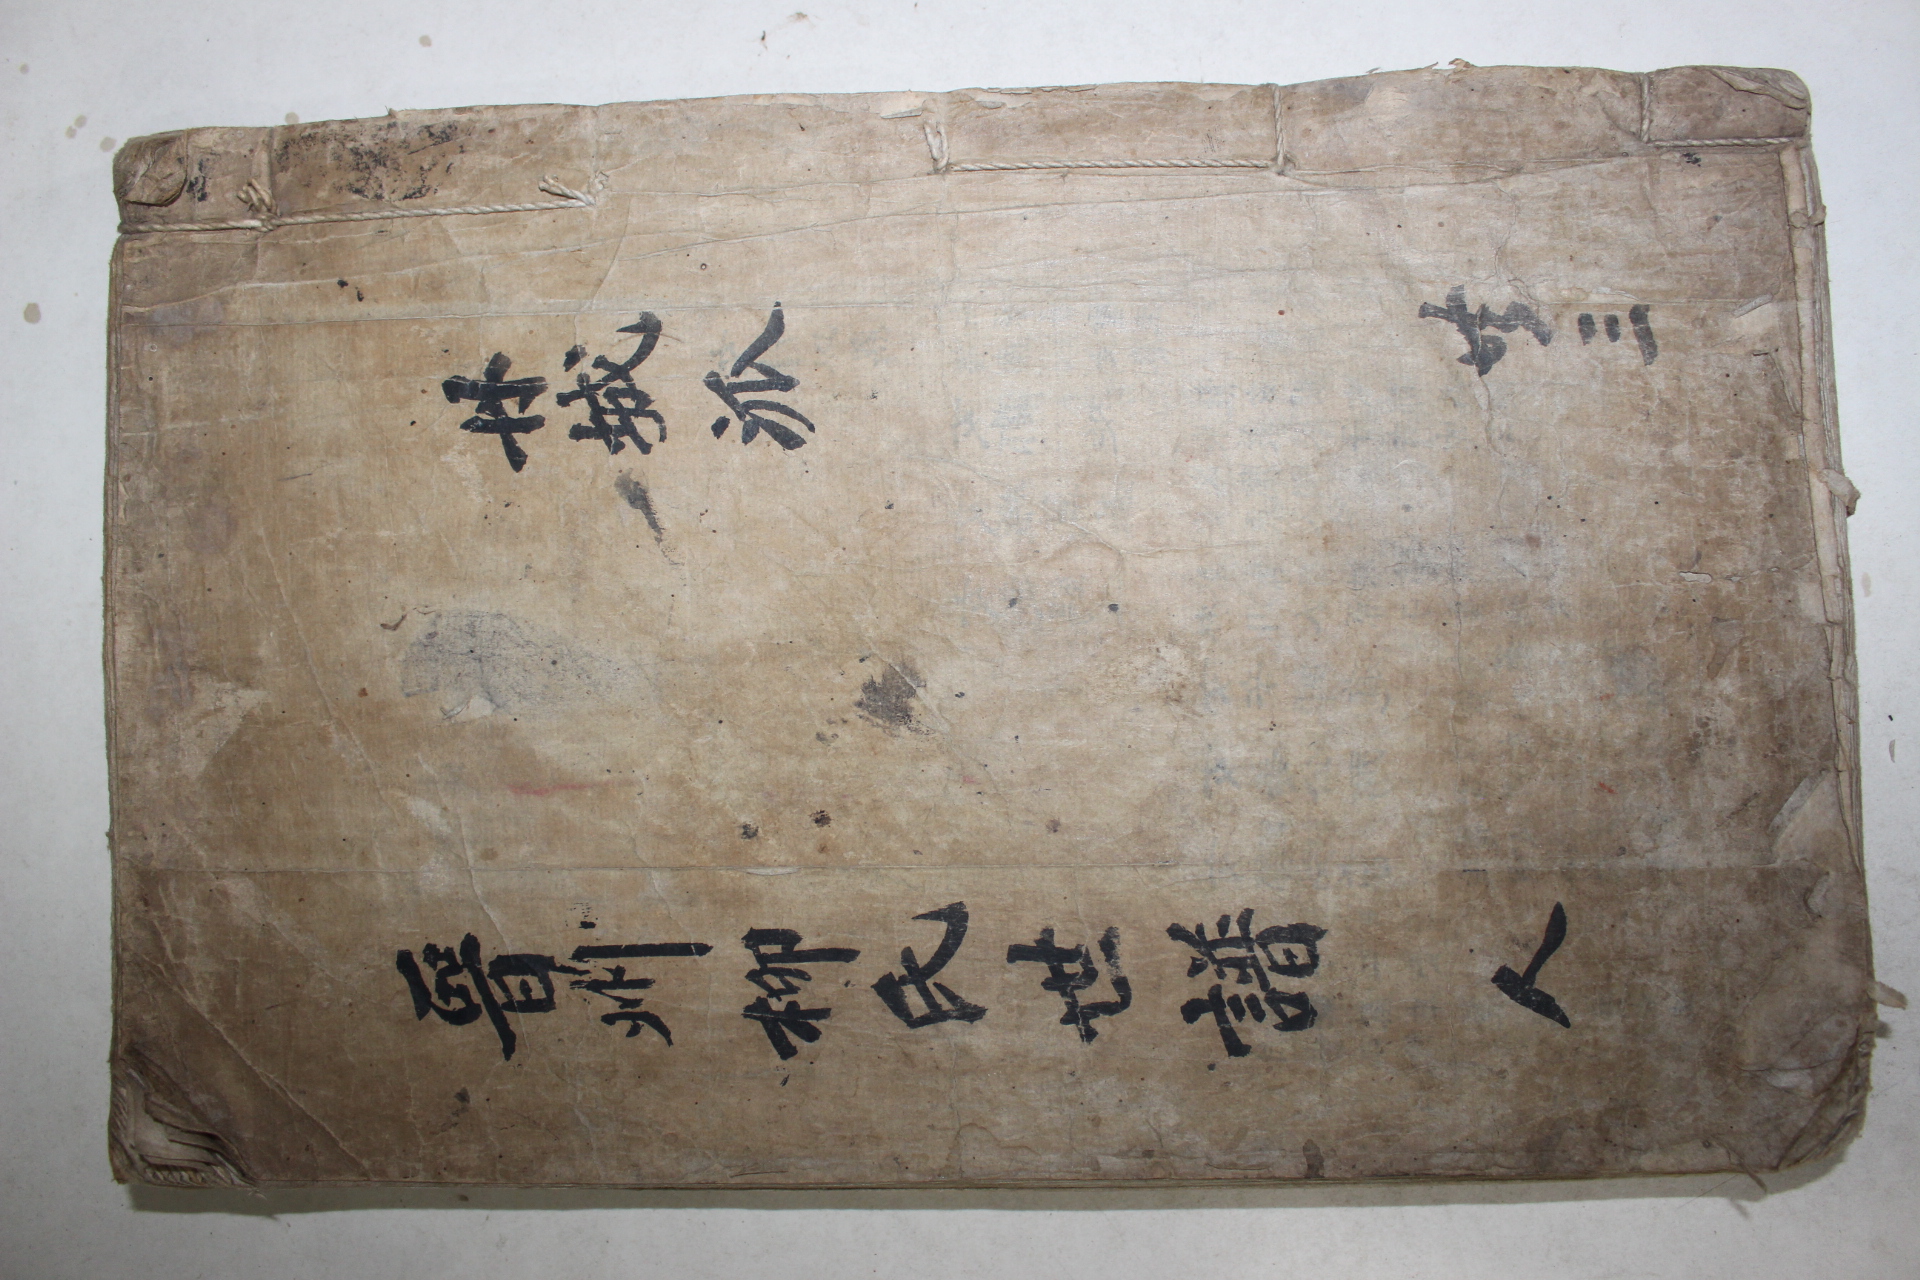 丹城派
共三
晉州柳氏世譜 人